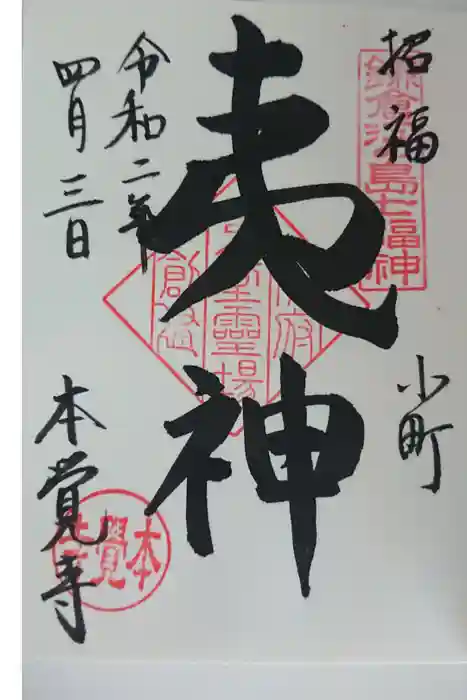 招福
小町
鎌倉江ノ島七福神
夷神
幕府
霊場
創
令和二年
四月三日
本覚寺
本覺寺